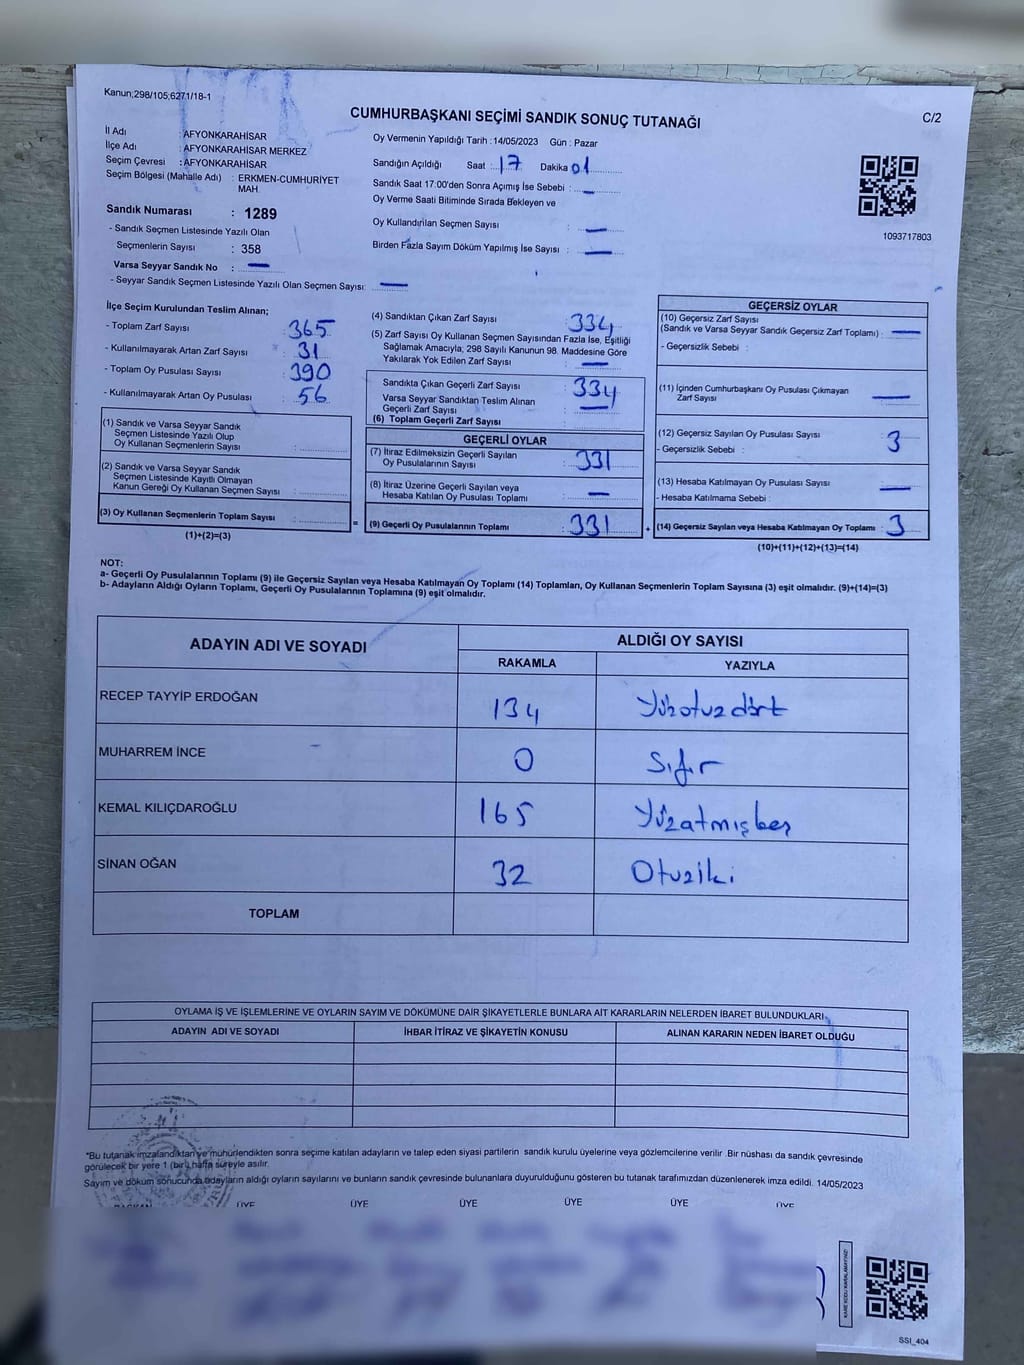 Kanun;298/105;6271/18-1
C/2
CUMHURBAŞKANI SEÇİMİ SANDIK SONUÇ TUTANAĞI
İl Adı : AFYONKARAHİSAR
İlçe Adı : AFYONKARAHİSAR MERKEZ
Seçim Çevresi : AFYONKARAHİSAR
Seçim Bölgesi (Mahalle Adı) : ERKMEN-CUMHURİYET
MAH.
Sandık Numarası : 1289
- Sandık Seçmen Listesinde Yazılı Olan
Seçmenlerin Sayısı : 358
Varsa Seyyar Sandık No : —
- Seyyar Sandık Seçmen Listesinde Yazılı Olan Seçmen Sayısı: —
Oy Vermenin Yapıldığı Tarih : 14/05/2023 Gün : Pazar
Sandığın Açıldığı Saat : 17 Dakika 01
Sandık Saat 17:00'den Sonra Açımış İse Sebebi : —
Oy Verme Saati Bitiminde Sırada Bekleyen ve
Oy Kullandırılan Seçmen Sayısı : —
Birden Fazla Sayım Döküm Yapılmış İse Sayısı : —
1093717803
İlçe Seçim Kurulundan Teslim Alınan;
- Toplam Zarf Sayısı : 365
- Kullanılmayarak Artan Zarf Sayısı : 31
- Toplam Oy Pusulası Sayısı : 390
- Kullanılmayarak Artan Oy Pusulası : 56
(1) Sandık ve Varsa Seyyar Sandık
Seçmen Listesinde Yazılı Olup
Oy Kullanan Seçmenlerin Sayısı :
(2) Sandık ve Varsa Seyyar Sandık
Seçmen Listesinde Kayıtlı Olmayan
Kanun Gereği Oy Kullanan Seçmen Sayısı :
(3) Oy Kullanan Seçmenlerin Toplam Sayısı :
(1)+(2)=(3)
(4) Sandıktan Çıkan Zarf Sayısı : 334
(5) Zarf Sayısı Oy Kullanan Seçmen Sayısından Fazla İse, Eşitliği
Sağlamak Amacıyla, 298 Sayılı Kanunun 98. Maddesine Göre
Yakılarak Yok Edilen Zarf Sayısı : —
Sandıkta Çıkan Geçerli Zarf Sayısı : 334
Varsa Seyyar Sandıktan Teslim Alınan
Geçerli Zarf Sayısı : —
(6) Toplam Geçerli Zarf Sayısı :
GEÇERLİ OYLAR
(7) İtiraz Edilmeksizin Geçerli Sayılan
Oy Pusulalarının Sayısı : 331
(8) İtiraz Üzerine Geçerli Sayılan veya
Hesaba Katılan Oy Pusulası Toplamı : —
= (9) Geçerli Oy Pusulalarının Toplamı : 331
GEÇERSİZ OYLAR
(10) Geçersiz Zarf Sayısı
(Sandık ve Varsa Seyyar Sandık Geçersiz Zarf Toplamı) : —
- Geçersizlik Sebebi :
(11) İçinden Cumhurbaşkanı Oy Pusulası Çıkmayan
Zarf Sayısı : —
(12) Geçersiz Sayılan Oy Pusulası Sayısı : 3
- Geçersizlik Sebebi :
(13) Hesaba Katılmayan Oy Pusulası Sayısı : —
- Hesaba Katılmama Sebebi :
+ (14) Geçersiz Sayılan veya Hesaba Katılmayan Oy Toplamı : 3
(10)+(11)+(12)+(13)=(14)
NOT:
a- Geçerli Oy Pusulalarının Toplamı (9) ile Geçersiz Sayılan veya Hesaba Katılmayan Oy Toplamı (14) Toplamları, Oy Kullanan Seçmenlerin Toplam Sayısına (3) eşit olmalıdır. (9)+(14)=(3)
b- Adayların Aldığı Oyların Toplamı, Geçerli Oy Pusulalarının Toplamına (9) eşit olmalıdır.
ADAYIN ADI VE SOYADI ALDIĞI OY SAYISI
RAKAMLA YAZIYLA
RECEP TAYYİP ERDOĞAN 134 Yüzotuzdört
MUHARREM İNCE 0 Sıfır
KEMAL KILIÇDAROĞLU 165 Yüzatmışbeş
SİNAN OĞAN 32 Otuziki
TOPLAM
OYLAMA İŞ VE İŞLEMLERİNE VE OYLARIN SAYIM VE DÖKÜMÜNE DAİR ŞİKAYETLERLE BUNLARA AİT KARARLARIN NELERDEN İBARET BULUNDUKLARI
ADAYIN ADI VE SOYADI İHBAR İTİRAZ VE ŞİKAYETİN KONUSU ALINAN KARARIN NEDEN İBARET OLDUĞU
*Bu tutanak imzalandıktan ve mühürlendikten sonra seçime katılan adayların ve talep eden siyasi partilerin sandık kurulu üyelerine veya gözlemcilerine verilir .Bir nüshası da sandık çevresinde
görülecek bir yere 1 (bir) hafta süreyle asılır.
Sayım ve döküm sonucunda adayların aldığı oyların sayılarını ve bunların sandık çevresinde bulunanlara duyurulduğunu gösteren bu tutanak tarafımızdan düzenlenerek imza edildi. 14/05/2023
BAŞKAN ÜYE ÜYE ÜYE ÜYE ÜYE ÜYE
SSI_404